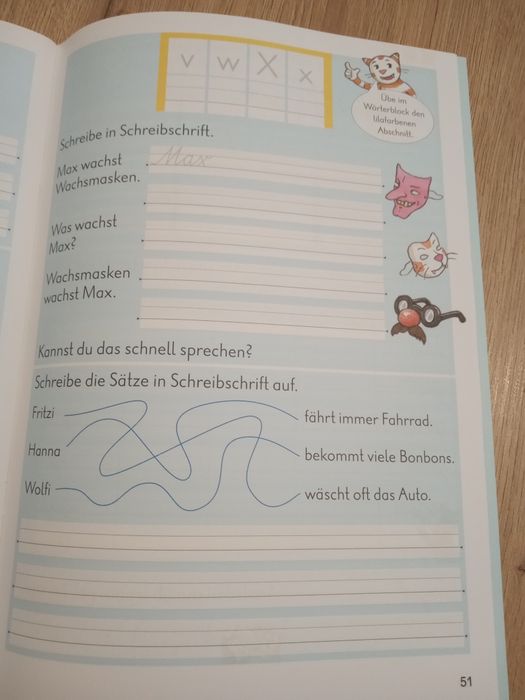 v w X x
Übe im
Wörterblock den
lilafarbenen
Abschnitt.
Schreibe in Schreibschrift.
Max wachst
Wachsmasken.
Max
Was wachst
Max?
Wachsmasken
wachst Max.
Kannst du das schnell sprechen?
Schreibe die Sätze in Schreibschrift auf.
Fritzi
fährt immer Fahrrad.
Hanna
bekommt viele Bonbons.
Wolfi
wäscht oft das Auto.
51